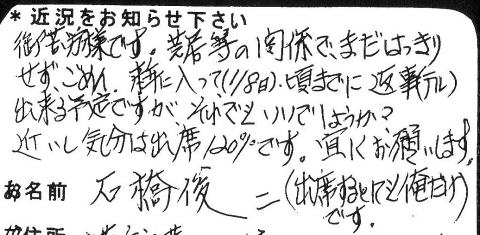 *近況をお知らせ下さい
御苦労様です。芸者等の関係で、まだはっきり
せず、ごめん。新年に入って(1/8日)頃までに返事(TEL)
出来る予定ですが、それでもいいでしょうか?
近いし気分は出席120%です。宜しくお願いします。
お名前 石橋俊二(出席するとしても俺だけ)
です。